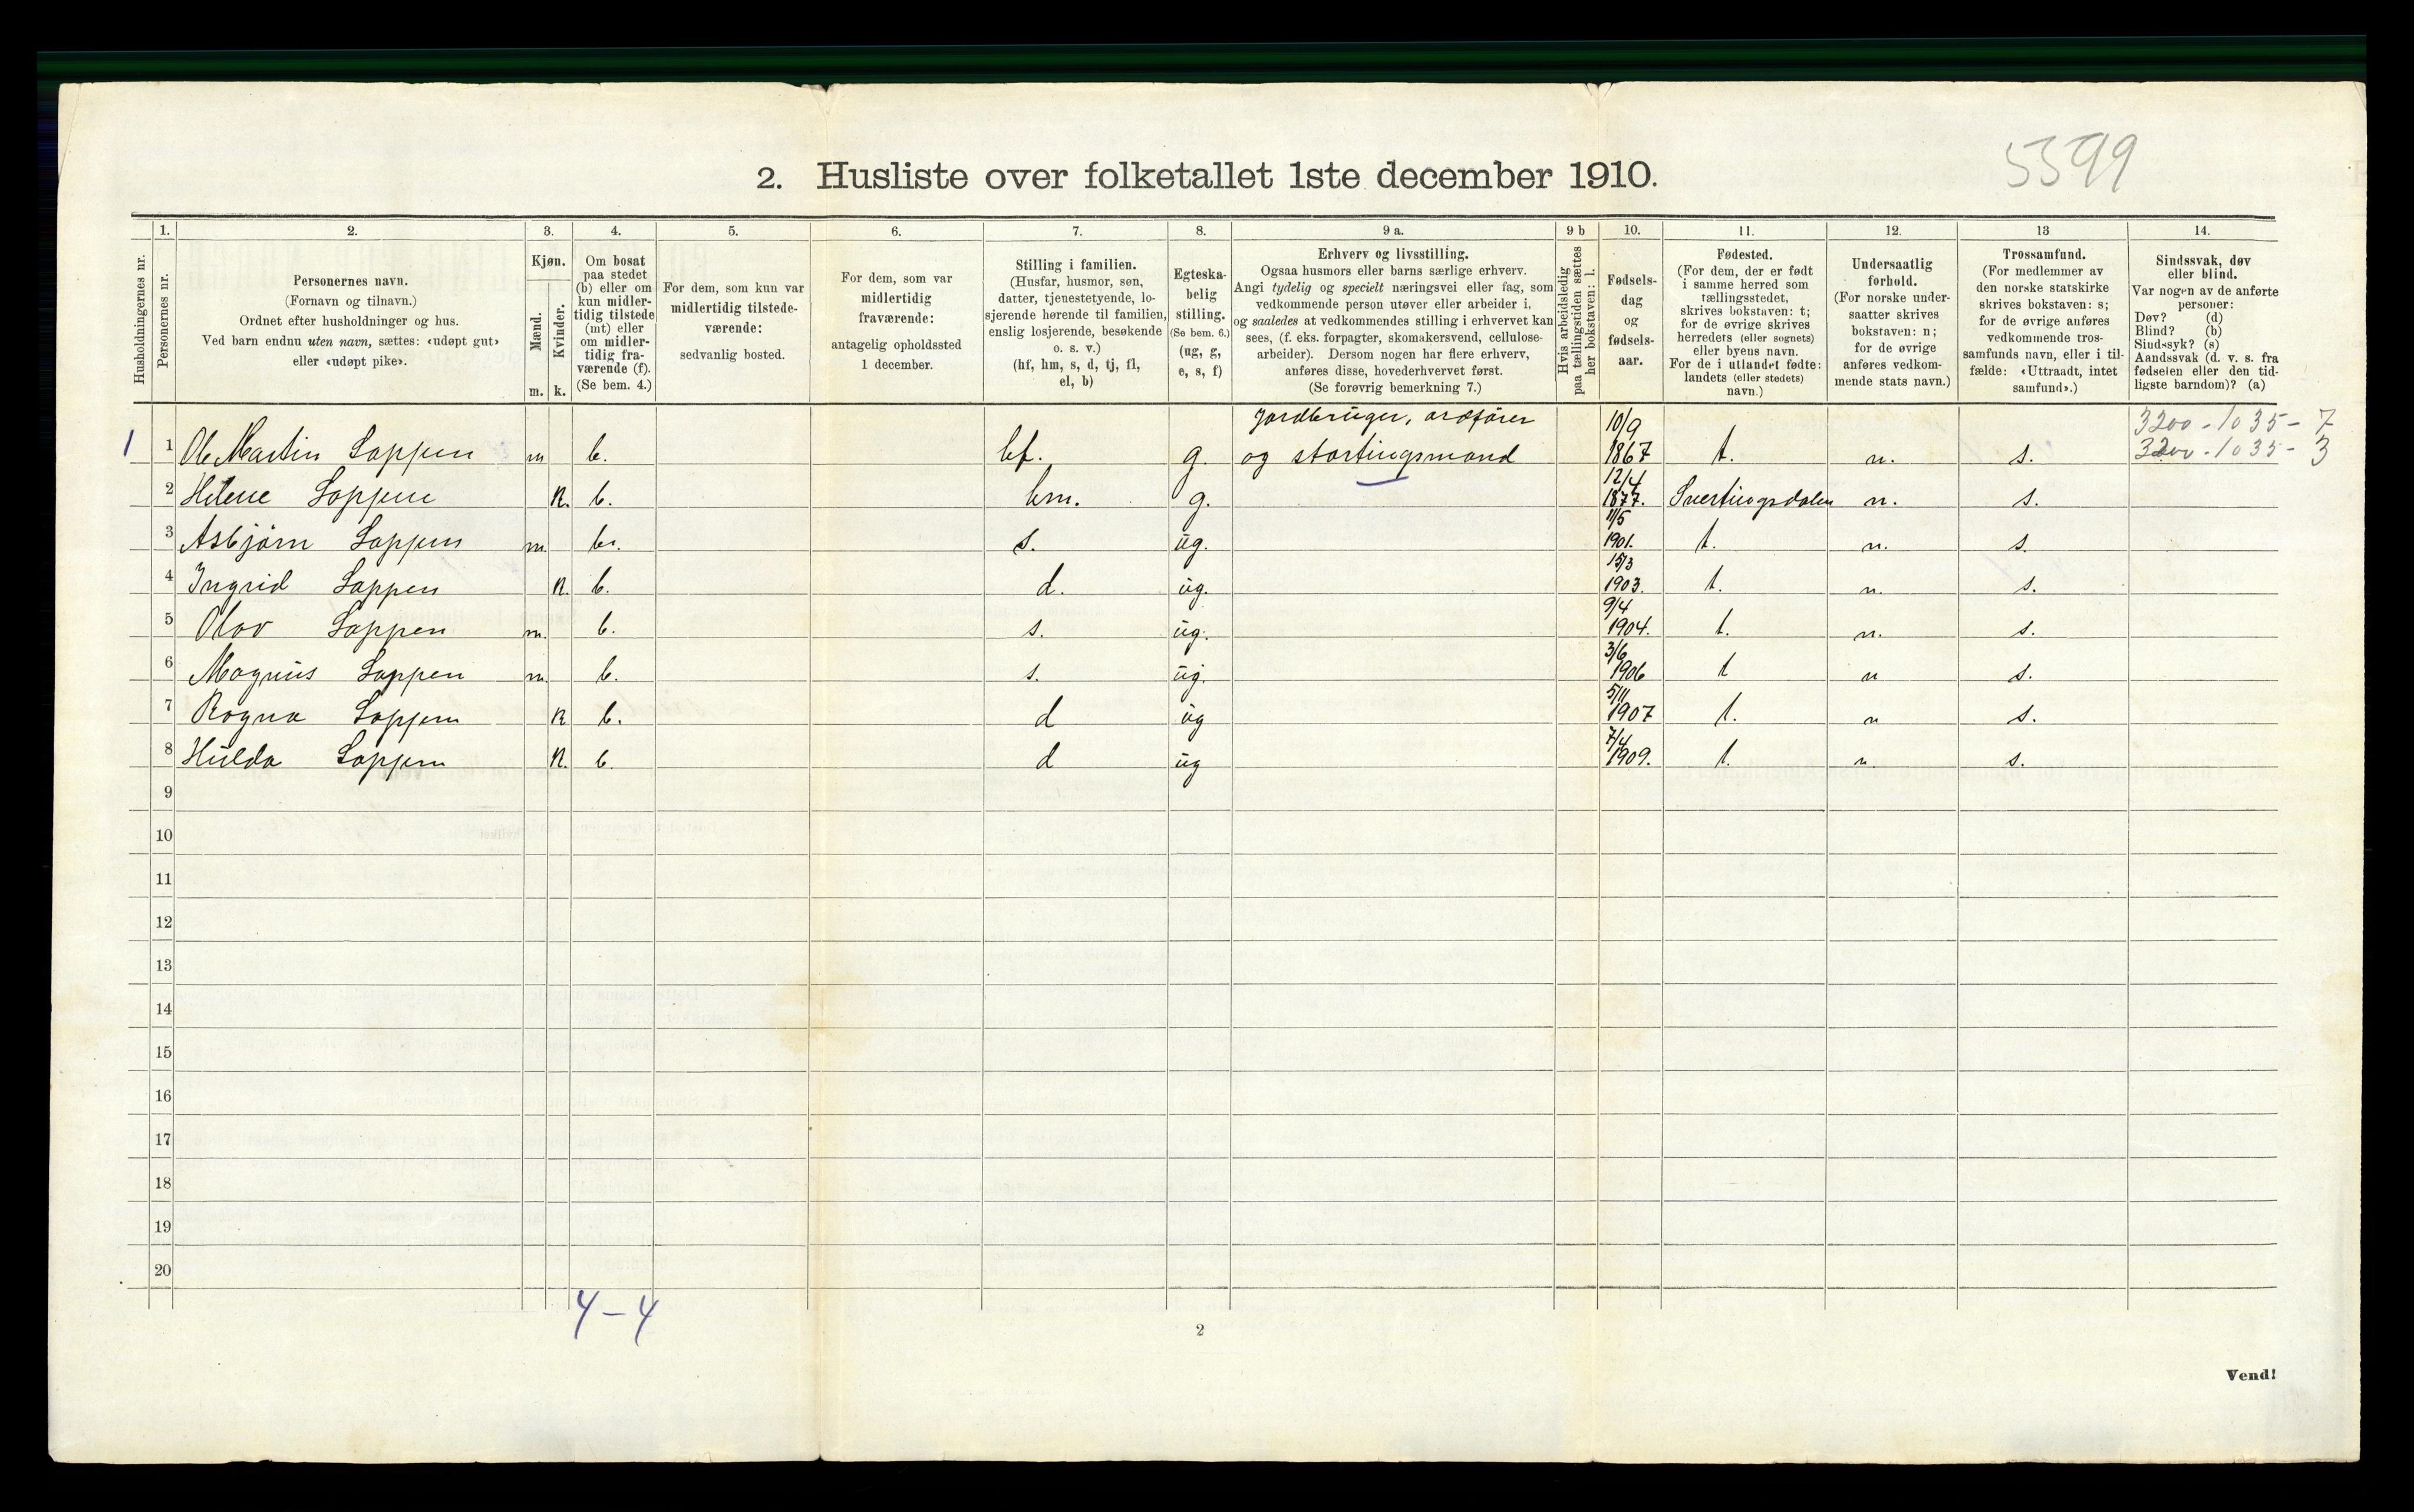 5399
2. Husliste over folketallet 1ste december 1910.
Husholdningernes nr.
1. Personernes nr.
2. Personernes navn.
(Fornavn og tilnavn.)
Ordnet efter husholdninger og hus.
Ved barn endnu uten navn, sættes: «udøpt gut»
eller «udøpt pike».
3. Kjøn.
Mænd. m.
Kvinder. k.
4. Om bosat
paa stedet
(b) eller om
kun midler-
tidig tilstede
(mt) eller
om midler-
tidig fra-
værende (f).
(Se bem. 4.)
5. For dem, som kun var
midlertidig tilstede-
værende:
sedvanlig bosted.
6. For dem, som var
midlertidig
fraværende:
antagelig opholdssted
1 december.
7. Stilling i familien.
(Husfar, husmor, søn,
datter, tjenestetyende, lo-
sjerende hørende til familien,
enslig losjerende, besøkende
o. s. v.)
(hf, hm, s, d, tj, fl,
el, b)
8. Egteska-
belig
stilling.
(Se bem. 6.)
(ug, g,
e, s, f)
9 a. Erhverv og livsstilling.
Ogsaa husmors eller barns særlige erhverv.
Angi tydelig og specielt næringsvei eller fag, som
vedkommende person utøver eller arbeider i,
og saaledes at vedkommendes stilling i erhvervet kan
sees, (f. eks. forpagter, skomakersvend, cellulose-
arbeider). Dersom nogen har flere erhverv,
anføres disse, hovederhvervet først.
(Se forøvrig bemerkning 7.)
9 b Hvis arbeidsledig
paa tællingstiden sættes
her bokstaven: l.
10. Fødsels-
dag
og
fødsels-
aar.
11. Fødested.
(For dem, der er født
i samme herred som
tællingsstedet,
skrives bokstaven: t;
for de øvrige skrives
herredets (eller sognets)
eller byens navn.
For de i utlandet fødte:
landets (eller stedets)
navn.)
12. Undersaatlig
forhold.
(For norske under-
saatter skrives
bokstaven: n;
for de øvrige
anføres vedkom-
mende stats navn.)
13 Trossamfund.
(For medlemmer av
den norske statskirke
skrives bokstaven: s;
for de øvrige anføres
vedkommende tros-
samfunds navn, eller i til-
fælde: «Uttraadt, intet
samfund».)
14. Sindssvak, døv
eller blind.
Var nogen av de anførte
personer:
Døv? (d)
Blind? (b)
Sindssyk? (s)
Aandssvak (d. v. s. fra
fødselen eller den tid-
ligste barndom)? (a)
Jordbruger, ordfører 10/9 3200-1035-7
1 1 Ole Martin Lappen m b. hf. g. og stortingsmand 1867 t. n. s. 3200-1035-3
2 Helene Lappen k. b. hm. g. 12/4 1877. Svertingsdalen n. s.
3 Asbjørn Lappen m. b. s. ug. 11/5 1901. t. n. s.
4 Ingrid Lappen k. b. d. ug. 15/3 1903. t. n. s.
5 Olav Lappen m. b. s. ug. 9/4 1904. t. n. s.
6 Magnus Lappen m. b. s. ug. 3/6 1906 t n s.
7 Ragna Lappen k b. d ug 5/11 1907 t. n s.
8 Hulda Lappen k. b. d ug 7/4 1909. t. n. s.
9
10
11
12
13
14
15
16
17
18
19
20
4-4
2
Vend!